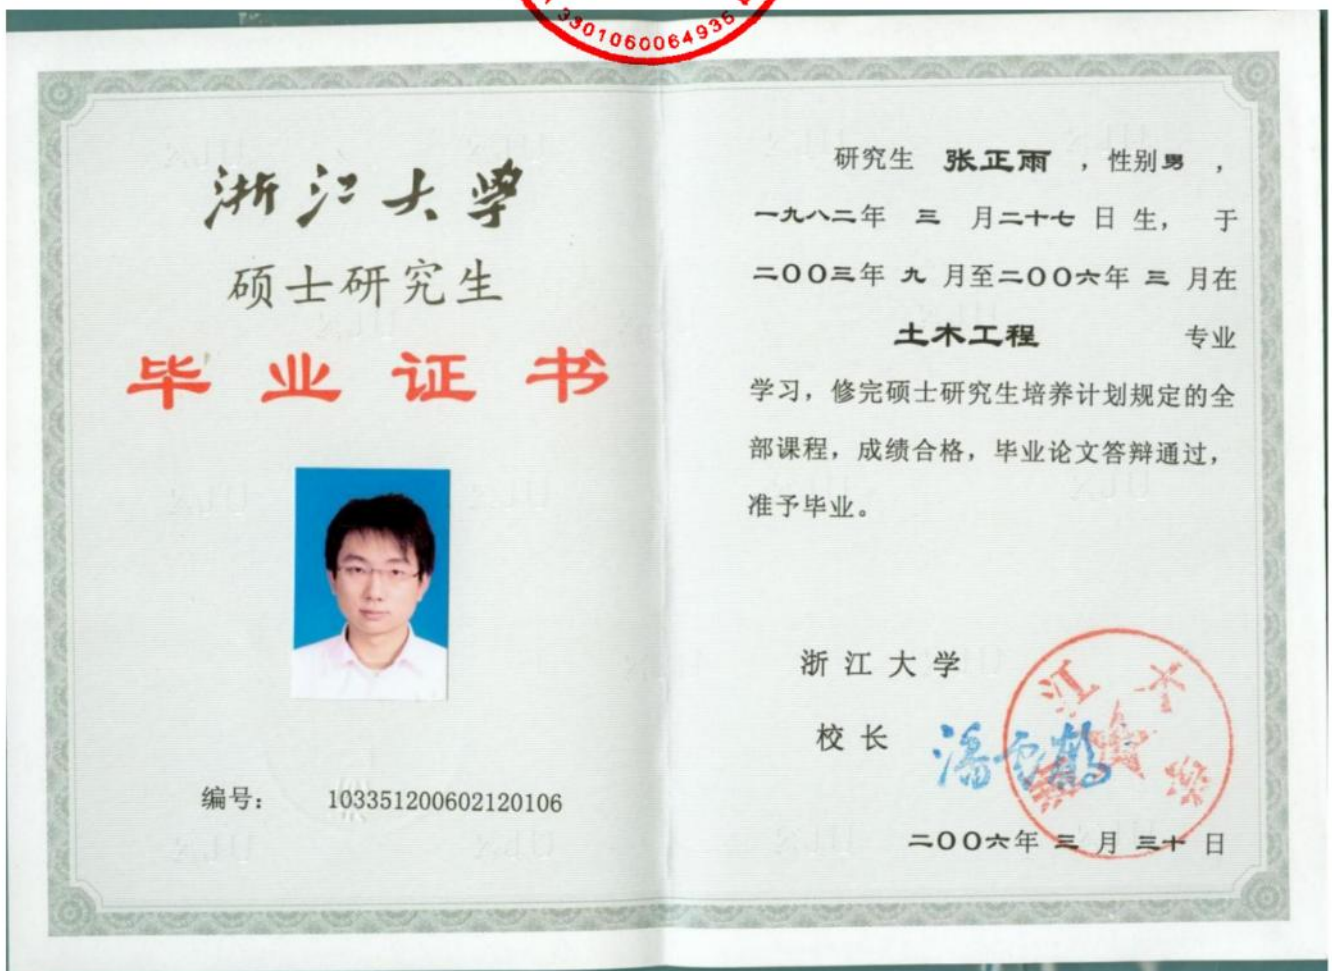 3301060064935
浙江大学
硕士研究生
毕业证书
编号： 103351200602120106
研究生 张正雨 ，性别男，
一九八二年 三 月二十七日生， 于
二〇〇三年 九 月至二〇〇六年 三 月在
土木工程 专业
学习，修完硕士研究生培养计划规定的全
部课程，成绩合格，毕业论文答辩通过，
准予毕业。
浙江大学
校长 潘云鹤
浙江大学
二〇〇六年 三 月 三十 日